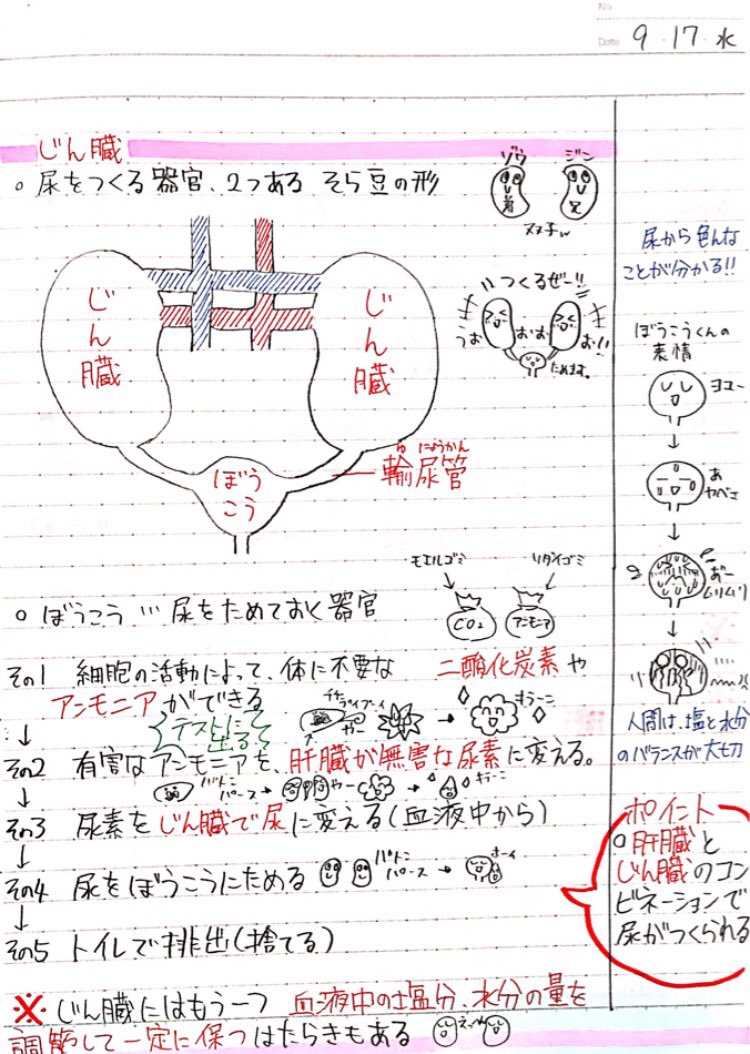 No
Date 9・17・水
じん臓
○ 尿をつくる器官、2つある そら豆の形
ゾウ ジン
弟 兄
ヌヌ子w
じん臓
じん臓
ぼうこう
輸尿管
ゆ にょうかん
つくるぜー!!
うお おお お!!
ためます。
尿から色んな
ことが分かる!!
ぼうこうくんの
表情
ヨユー
↓
あ
ヤベさ
↓
あ゛ー
ムリムリ
↓
人間は、塩と水分
のバランスが大切
モエルゴミ リサイゴミ
CO₂ アンモニア
○ ぼうこう … 尿をためておく器官
その1 細胞の活動によって、体に不要な 二酸化炭素や
アンモニアができる
テストに
出る?
↓
その2 有害なアンモニアを、肝臓が無害な尿素に変える。
バトン
パース→
↓
その3 尿素をじん臓で尿に変える(血液中から)
↓
その4 尿をぼうこうにためる
バトン
パース→
ホーイ
↓
その5 トイレで排出(捨てる)
ポイント
○肝臓と
じん臓のコン
ビネーションで
尿がつくられる
※ じん臓にはもう一つ 血液中の塩分、水分の量を
調節して一定に保つはたらきもある